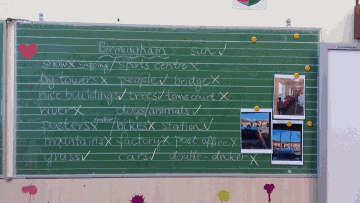 Birmingham sun ✓
snow x signing / sports centre x
big towers x people ✓ bridge x
nice buildings ✓ trees ✓ tennis court x
river x dogs/animals ✓
posters x / bikes x station ✓
mountains x factory x post office x
grass ✓ cars ✓ double-decker x